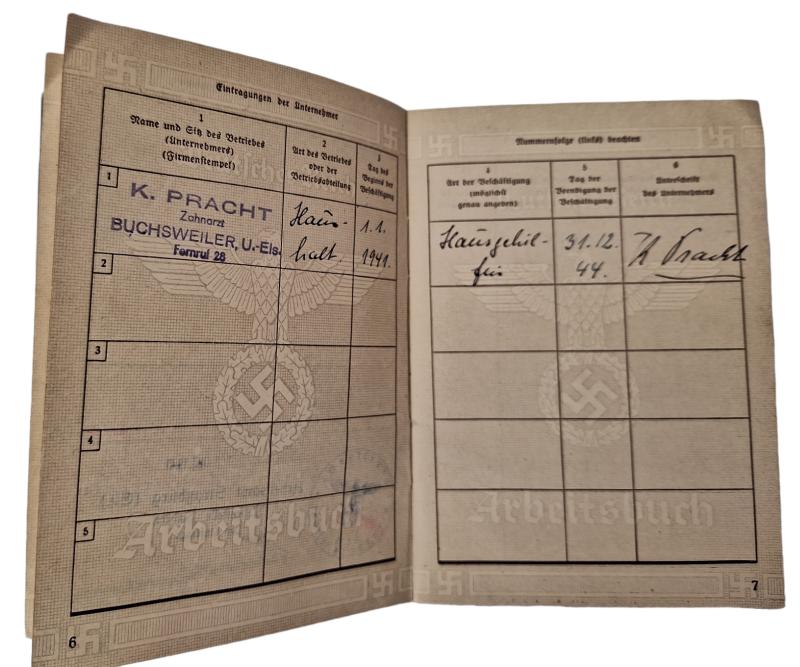 Eintragungen der Unternehmer
1
Name und Sitz des Betriebes
(Unternehmers)
(Firmenstempel)
2
Art des Betriebes
oder der
Betriebsabteilung
3
Tag des
Beginns der
Beschäftigung
1
K. PRACHT
Zahnarzt
BUCHSWEILER, U.-Els.
Fernruf 28
Haus-
halt.
1.1.
1941.
2
3
4
5
Arbeitsbuch
6
Nummernfolge (links) beachten
4
Art der Beschäftigung
(möglichst
genau angeben)
5
Tag der
Beendigung der
Beschäftigung
6
Unterschrift
des Unternehmers
Hausgehil-
fin
31.12.
44.
K Pracht
Arbeitsbuch
7